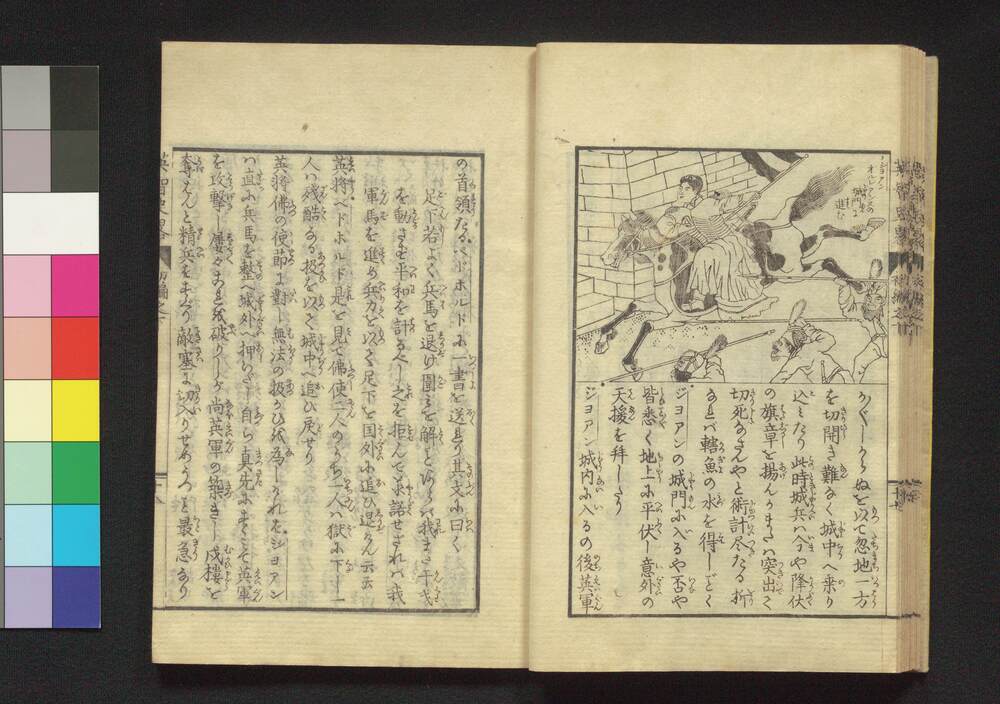 ジヨアン
オルレアンスの
城門に
進む
かぐしからぬを以て忽地一方
を切開き難なく城中へ乗り
込ミたり此時城兵ハ今や降伏
の旗章を揚んかまたハ突出て
切死なさんやと術計尽たる折
なれバ轄魚の水を得しごとく
ジヨアンの城門に入るや否や
皆悉く地上に平伏し意外の
天援を拝したり
ジヨアン城内に入るの後英軍
の首領たるベドホルドに一書を送るり其文に曰く
足下若よく兵馬を退け囲ミを解き
を動さず平和を計るべし之を拒んで承諾せざれバ我
軍馬を進め兵力を以て足下を国外に追ひ退けん云云
英将ベドホルド是を見て佛使二人のうち一人ハ獄に下し一
人ハ残酷なる扱を以て城中へ追ひ戻せり
英将佛の使節に對し無法の扱かひを為しかれを ジヨアン
ハ直に兵馬を整へ城外へ押いだし自ら真先にすゝミて英軍
を攻撃し屡々これを破りしが尚英軍の築きし戍樓を
奪はんと精兵をすぐり敵塞に切入りせめうつと最急なり
英智史略
初編